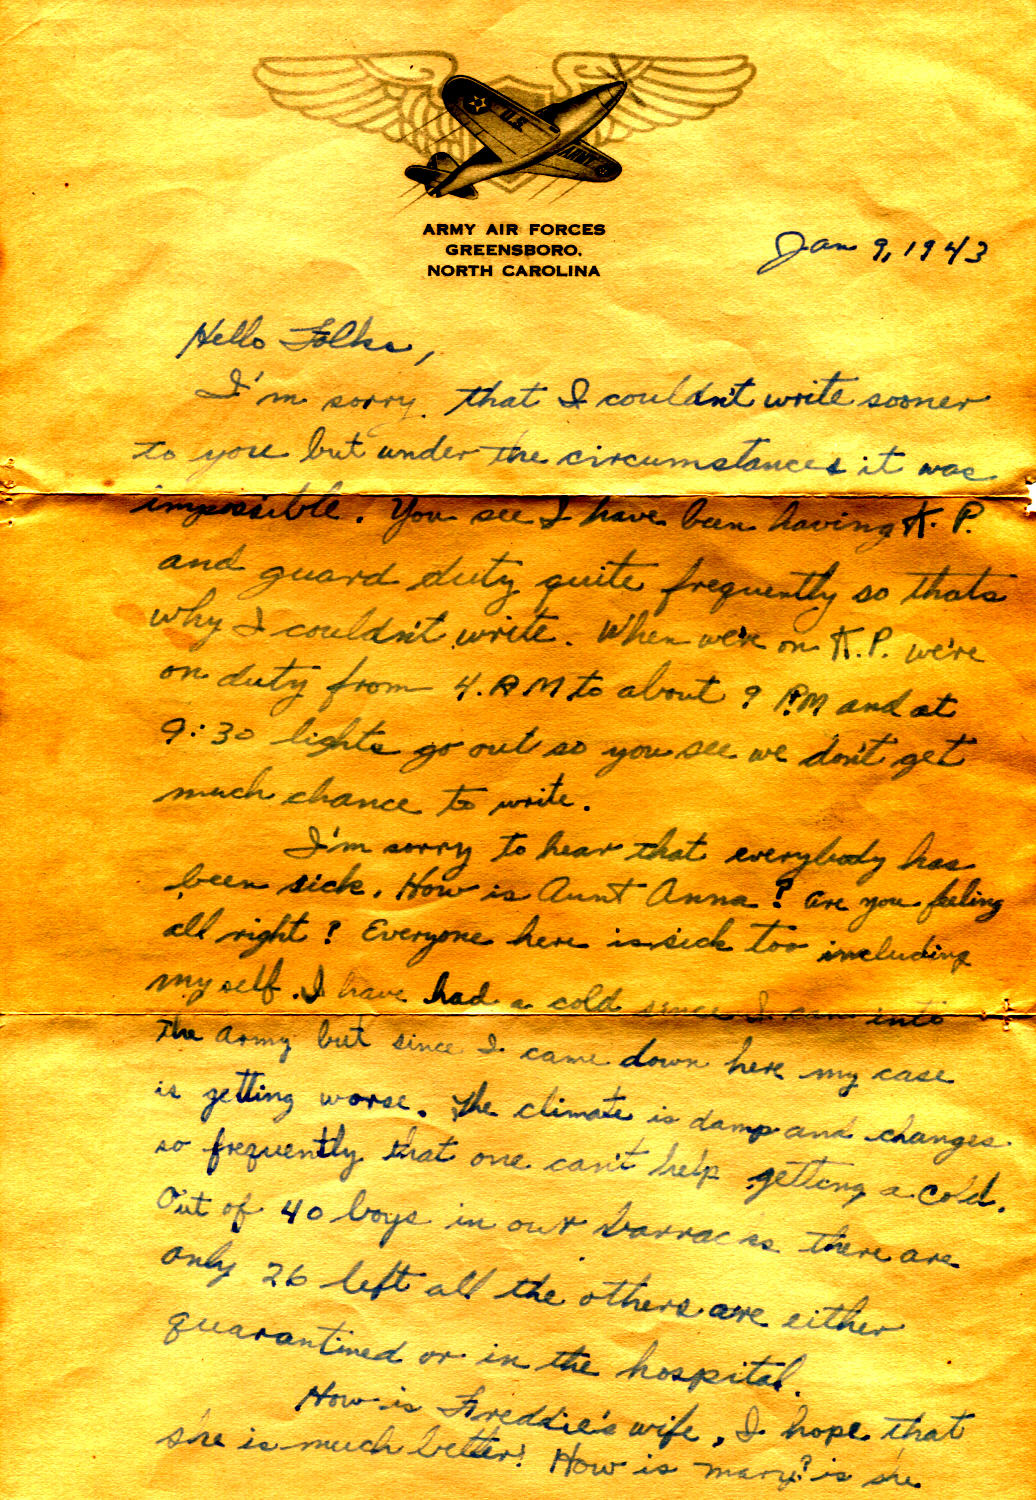 U.S.
ARMY
ARMY AIR FORCES
GREENSBORO,
NORTH CAROLINA
Jan 9, 1943
Hello Folks,
I'm sorry that I couldn't write sooner
to you but under the circumstances it was
impossible. You see I have been having K.P.
and guard duty quite frequently so thats
why I couldn't write. When we're on K.P. we're
on duty from 4. A M to about 9 P.M and at
9:30 lights go out so you see we don't get
much chance to write.
I'm sorry to hear that everybody has
been sick. How is Aunt Anna? are you feeling
all right? Everyone here is sick too including
myself. I have had a cold since I came into
the army but since I came down here my case
is getting worse. The climate is damp and changes
so frequently that one can't help getting a cold.
Out of 40 boys in our barracks there are
only 26 left all the others are either
quarantined or in the hospital.
How is Freddie's wife, I hope that
she is much better! How is mary? is she